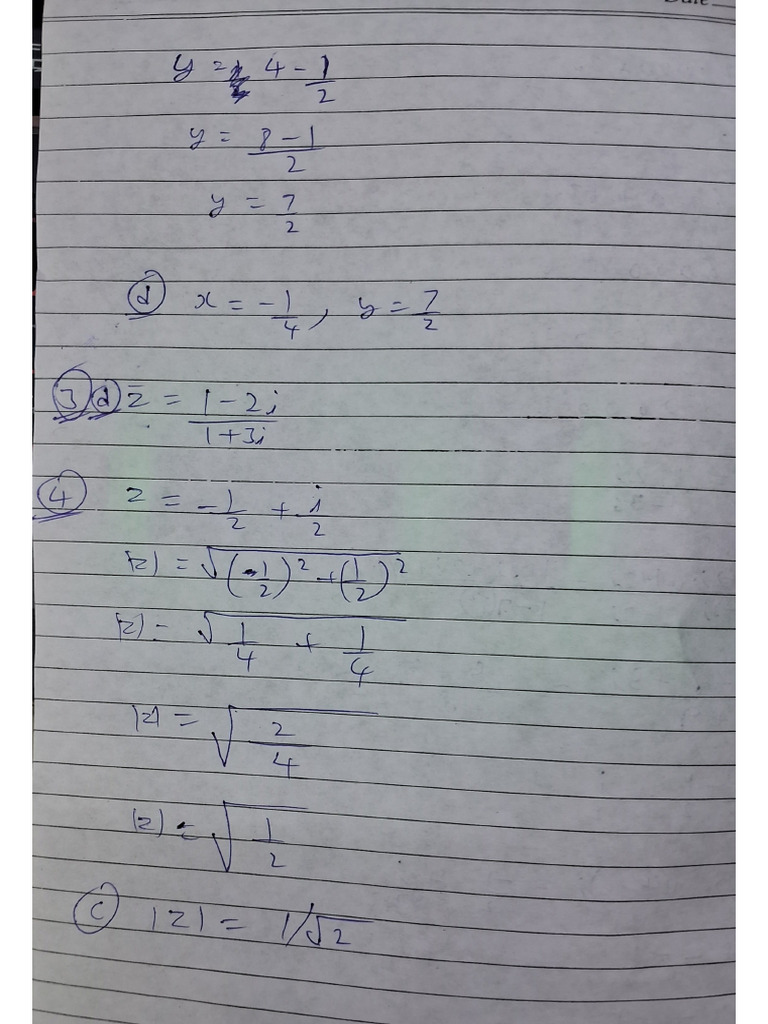 Date
y = 4 - 1/2
y = (8 - 1)/2
y = 7/2
(d) x = -1/4, y = 7/2
(3) (d) z̄ = (1 - 2i)/(1 + 3i)
(4) z = -1/2 + i/2
|z| = √((-1/2)² + (1/2)²)
|z| = √(1/4 + 1/4)
|z| = √(2/4)
|z| = √(1/2)
(c) |z| = 1/√2